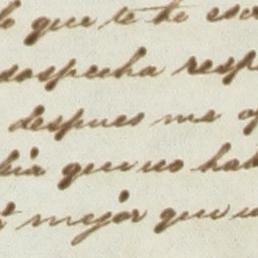 lo que te he esc
sospecha resp
despues me of
bia que no hab
mejor que u